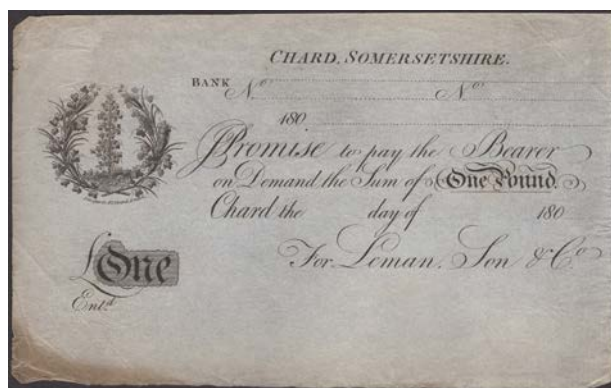 CHARD, SOMERSETSHIRE.
BANK No No
180
I Promise to pay the Bearer
on Demand the Sum of One Pound.
Chard the day of 180
For Leman, Son & Co
£ One
Entd